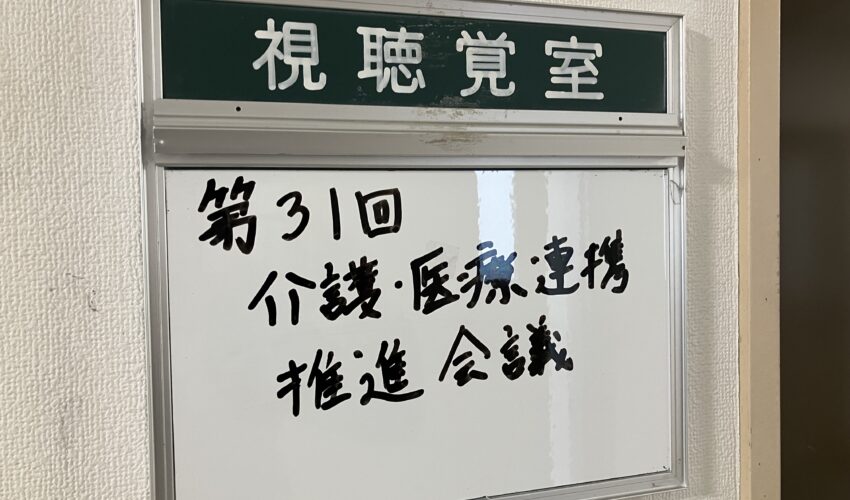 視聴覚室
第31回
介護・医療連携
推進会議